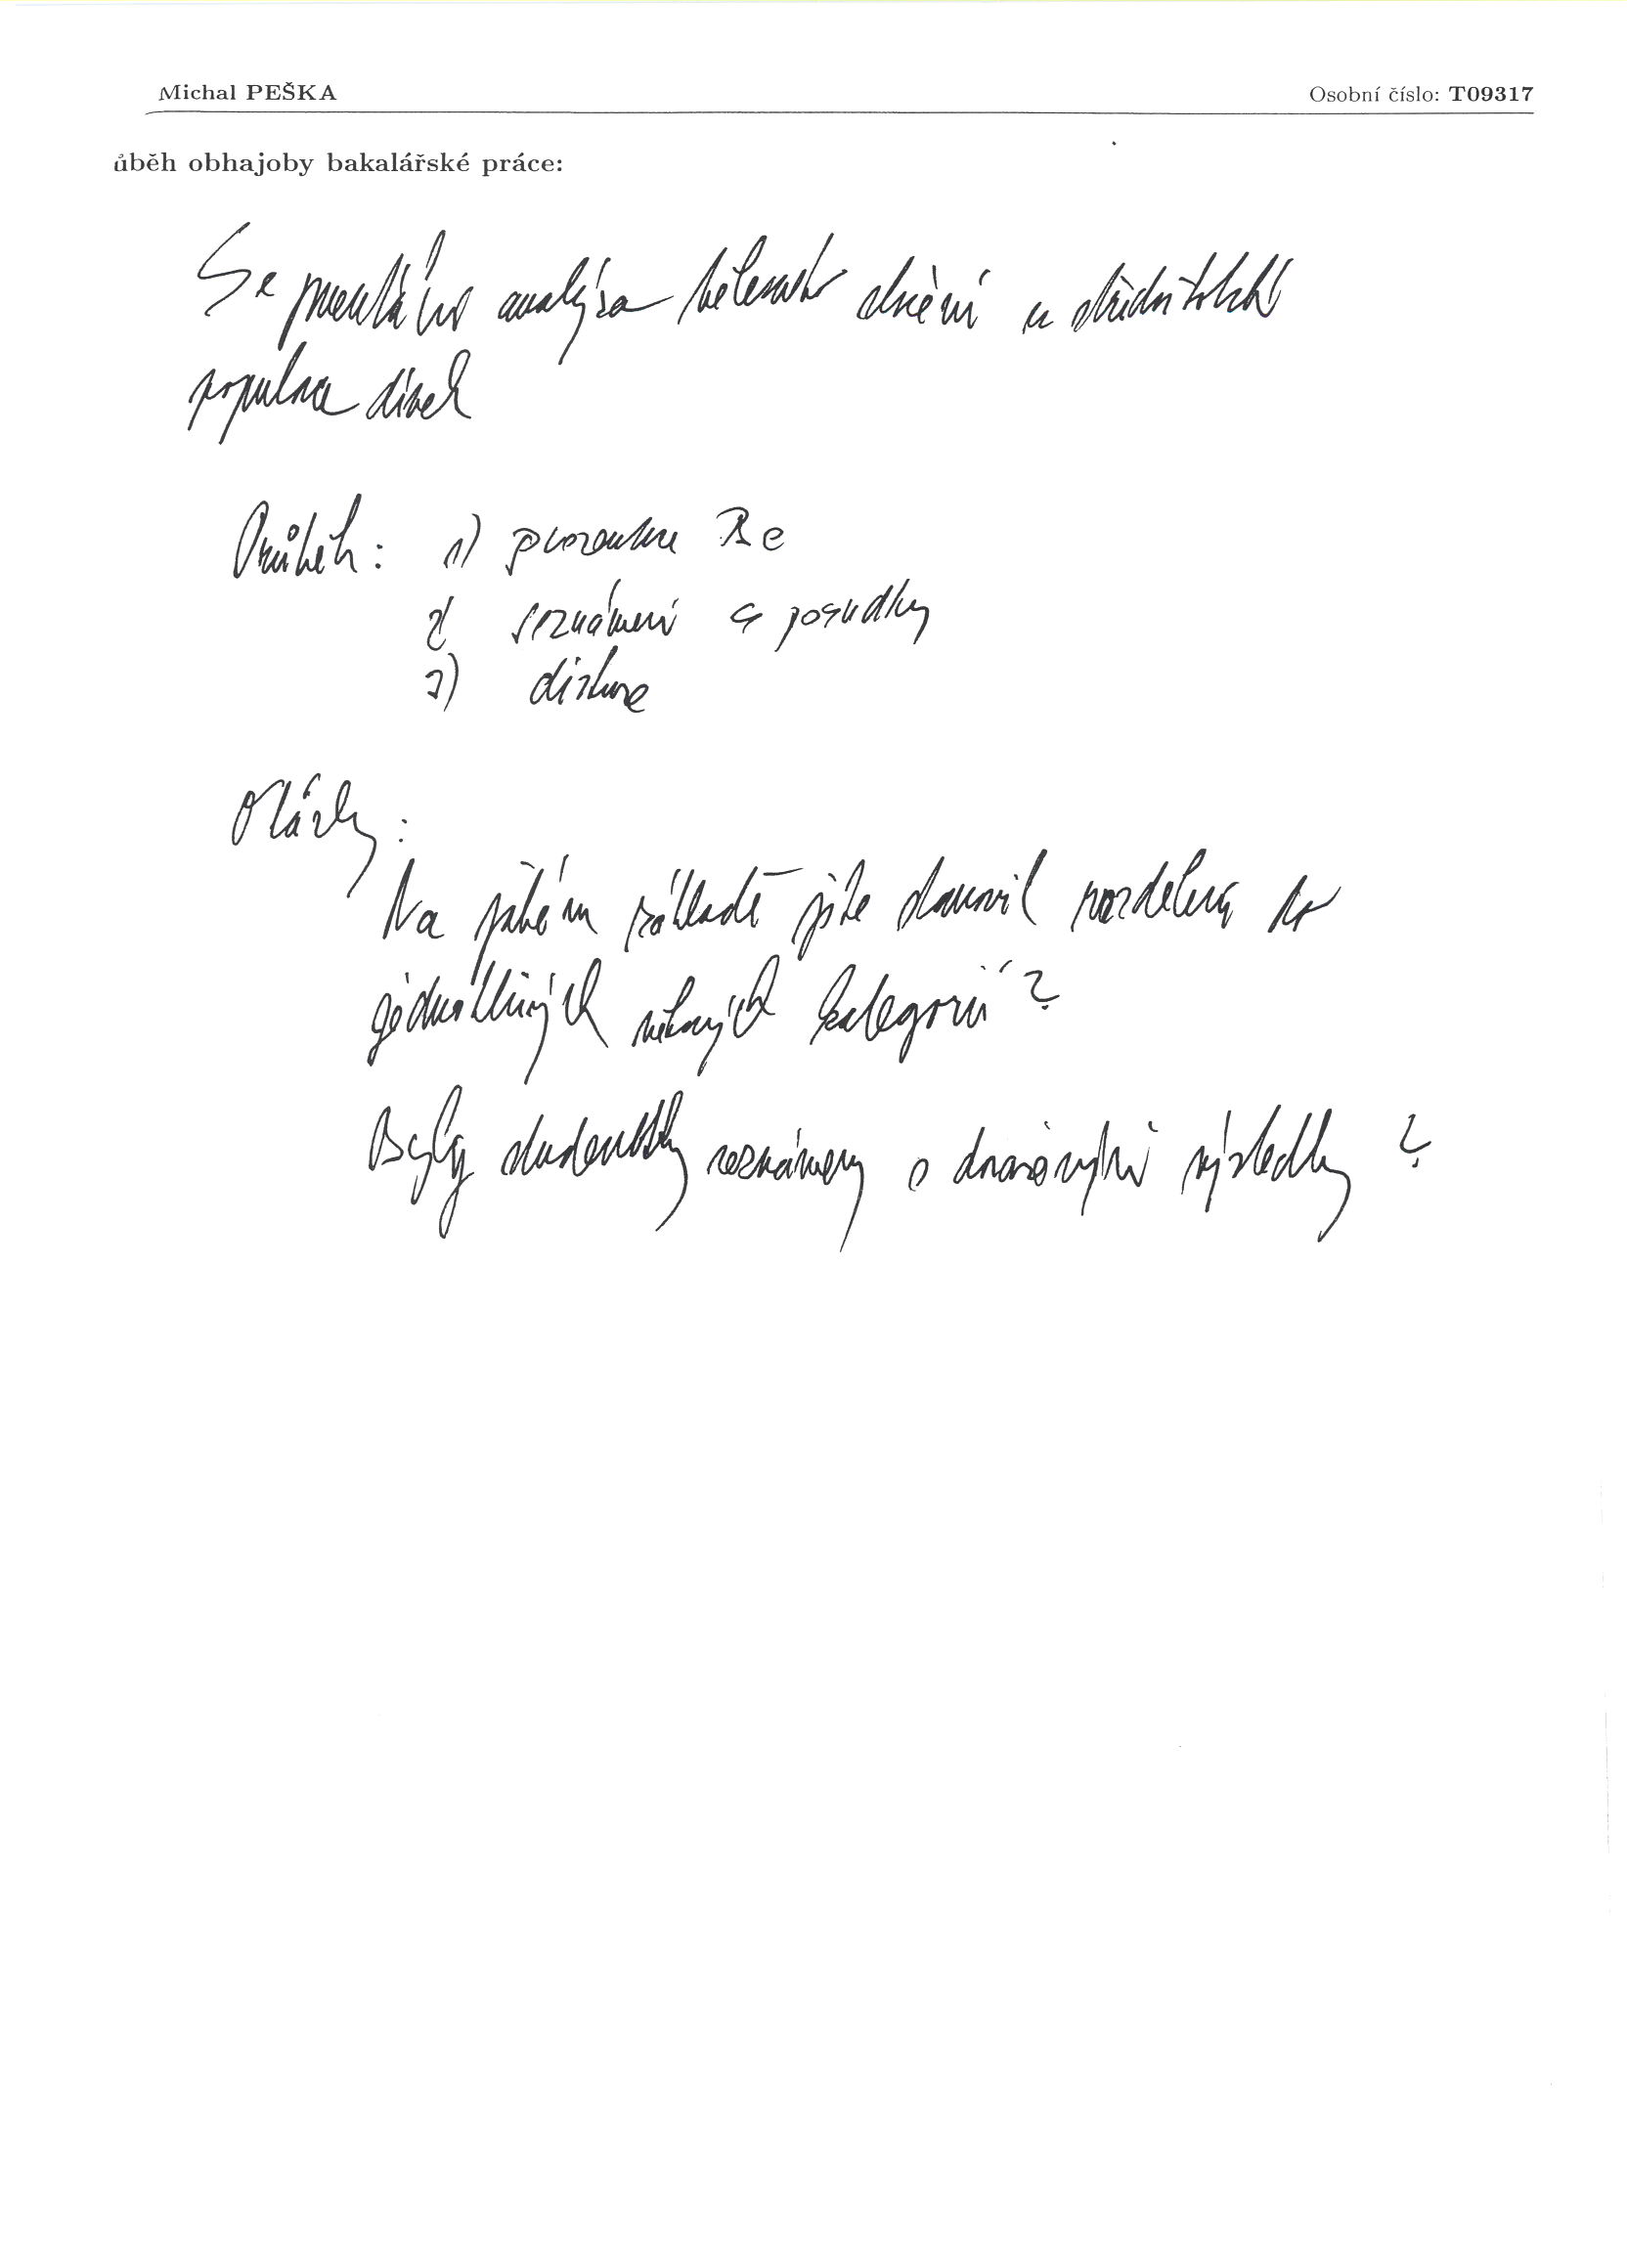 Michal PEŠKA Osobní číslo: T09317
ůběh obhajoby bakalářské práce:
Segmentální analýza tělesného složení u středoškolské
populace dívek
Průběh: 1) prezentace Bc
2) seznámení s posudky
3) diskuse
Otázky:
Na jakém základě jste stanovil rozdělení do
jednotlivých věkových kategorií?
Byly studentky seznámeny s výsledky?